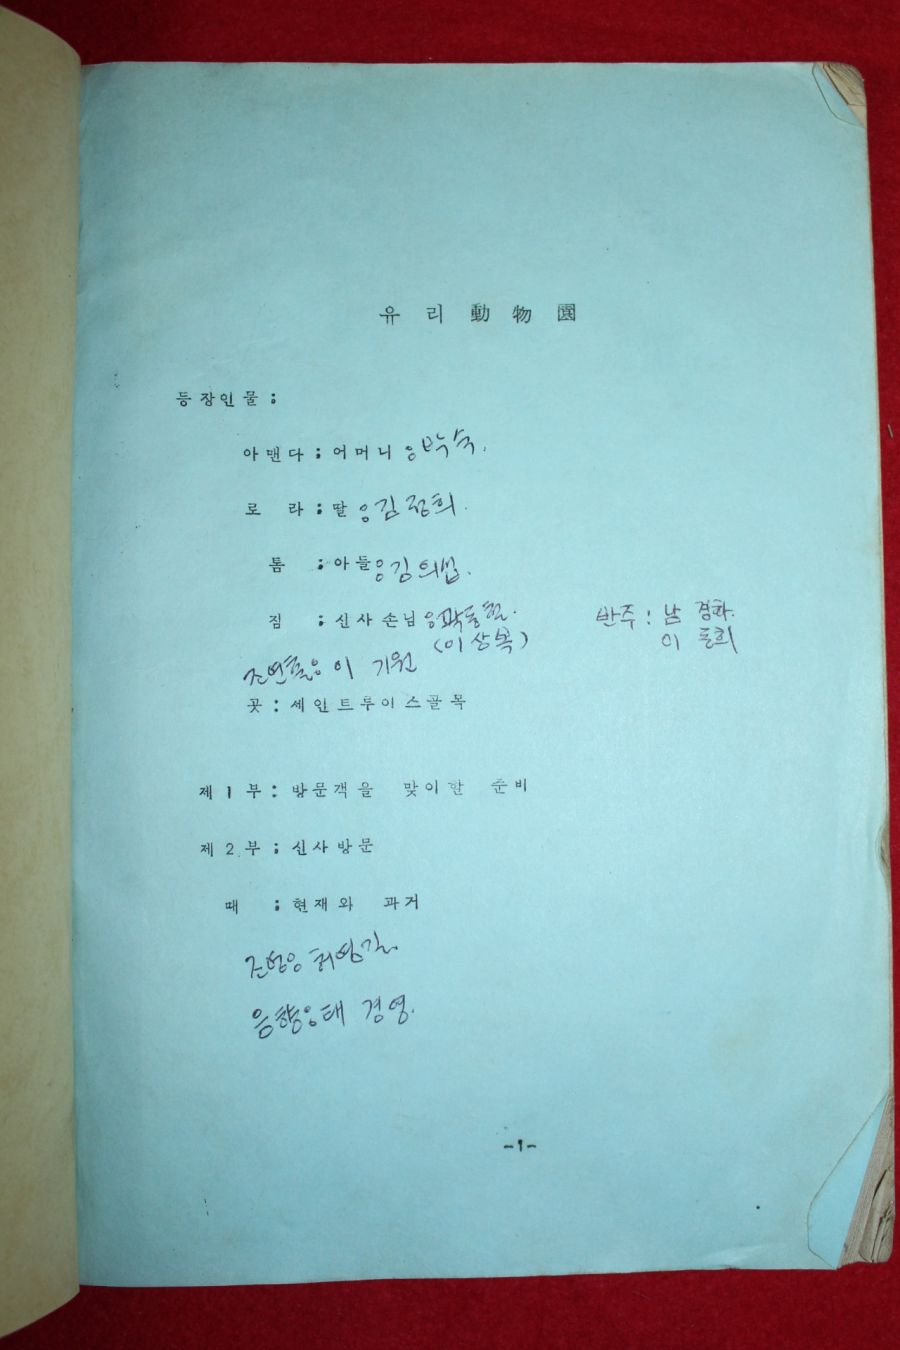 유리動物園
등장인물 :
아맨다 : 어머니
로 라 : 딸 김정희.
톰 : 아들 김의범.
짐 : 신사 손님 곽동철.
(이상복)
반주 : 남 경화.
이 동희
조연출 이 기원
곳 : 세인트루이스골목
제1부 : 방문객을 맞이할 준비
제2부 : 신사방문
때 : 현재와 과거
조명 허영길.
음향 태 경영.
-1-